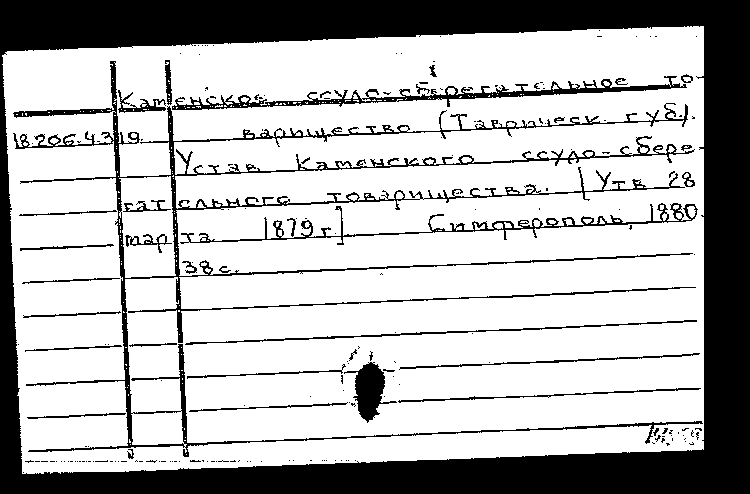 Каменское ссудо-сберегательное то-
18.206.4.319. варищество (Таврическ. губ.).
Устав Каменского ссудо-сбере-
гательного товарищества. [Утв 28
марта 1879 г.] Симферополь, 1880.
38 с.